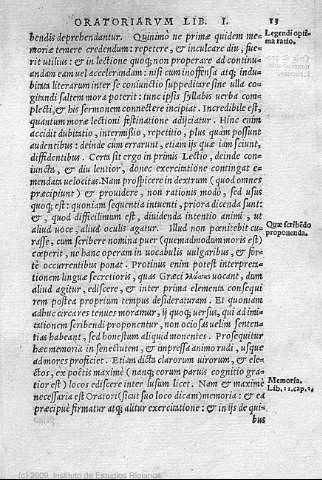 ORATORIARVM LIB. I.
13
bendis deprehendantur. Quinimo ne primæ quidem me-
moriæ temere credendum: repetere, & inculcare diu, fue-
rit utilius: & in lectione quoq; non properare ad continu-
andam eam uel accelerandam: nisi cum inoffensa atq; indu-
bitata literarum inter se coniunctio suppeditare sine ulla co-
gitandi saltem mora poterit: tunc ipsis syllabis uerba com-
plecti, & his sermonem connectere incipiat. Incredibile est,
quantum moræ lectioni festinatione adijciatur. Hinc enim
accidit dubitatio, intermissio, repetitio, plus quàm possunt
audentibus: deinde cum errarunt, etiam ijs quæ iam sciunt,
diffidentibus. Certa sit ergo in primis Lectio, deinde con-
iuncta, & diu lentior, donec exercitatione contingat e-
mendata uelocitas. Nam prospicere in dextrum (quod omnes
præcipiunt) & prouidere, non rationis modò, sed usus
quoq; est: quoniam sequentia intuenti, priora dicenda sunt:
&, quod difficilimum est, diuidenda intentio animi, ut
aliud uoce, aliud oculis agatur. Illud non pœnitebit cu-
rasse, cum scribere nomina puer (quemadmodum moris est)
cœperit, ne hanc operam in uocabulis uulgaribus, & for-
tè occurrentibus ponat. Protinus enim potest interpreta-
tionem linguæ secretioris, quas Græci uocant, dum
aliud agitur, ediscere, & inter prima elementa consequi
rem postea proprium tempus desideraturam. Et quoniam
adhuc circa res tenues moramur, ij quoq; uersus, qui ad imi-
tationem scribendi proponentur, non ociosas uelim senten-
tias habeant, sed honestum aliquid monentes. Prosequitur
hæc memoria in senectutem, & impressa animo rudi, usque
ad mores proficiet. Etiam dicta clarorum uirorum, & ele-
ctos, ex poëtis maximè (nanq; eorum paruis cognitio gra-
tior est) locos ediscere inter lusum licet. Nam & maximè
necessaria est Oratori (sicut suo loco dicam) memoria: & ea
præcipuè firmatur atq; alitur exercitatione: & in ijs de qui-
bus
Legendi opti-
ma ratio.
Quæ scribēdo
proponenda.
Memoria.
Lib. 11. cap. 24
(c) 2009. Instituto de Estudios Riojanos